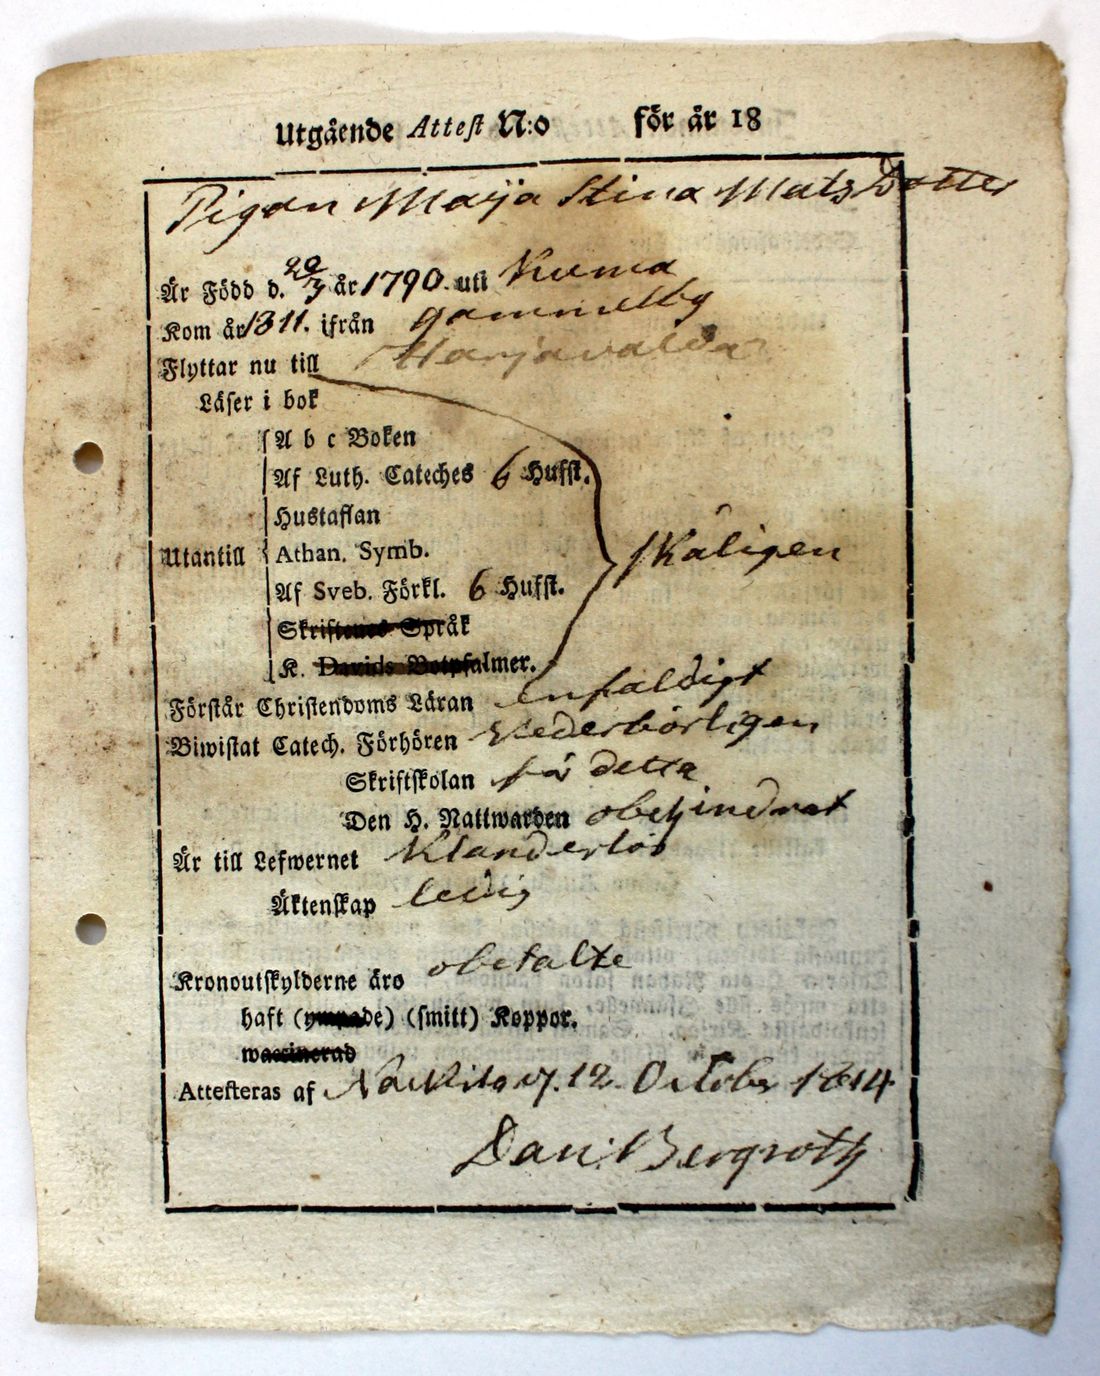 Utgående Attest N:o för år 18
Pigan Maija Stina Mats Dotter
Är Född d. 20/3 år 1790. uti Kumo
Kom år 1811. ifrån gammelby
Flyttar nu till Harjavalda
Läser i bok
A b c Boken
Af Luth. Cateches 6 Hufst.
Hustaflan
Utantill Athan. Symb. skäligen
Af Sveb. Förkl. 6 Hufst.
Skriftenes Språk
K. Davids Botpsalmer.
Förstår Christendoms Läran enfaldigt
Biwistat Catech. Förhören Vederbörligen
Skriftskolan för detta
Den H. Nattwarden obehindrat
Är till Lefwernet Klanderlös
Äktenskap ledig
Kronoutskylderne äro obetalte
haft (ympade) (smitt) Koppor.
waccinerad
Attesteras af Nackila d. 12 October 1814
Dan: Bergroth